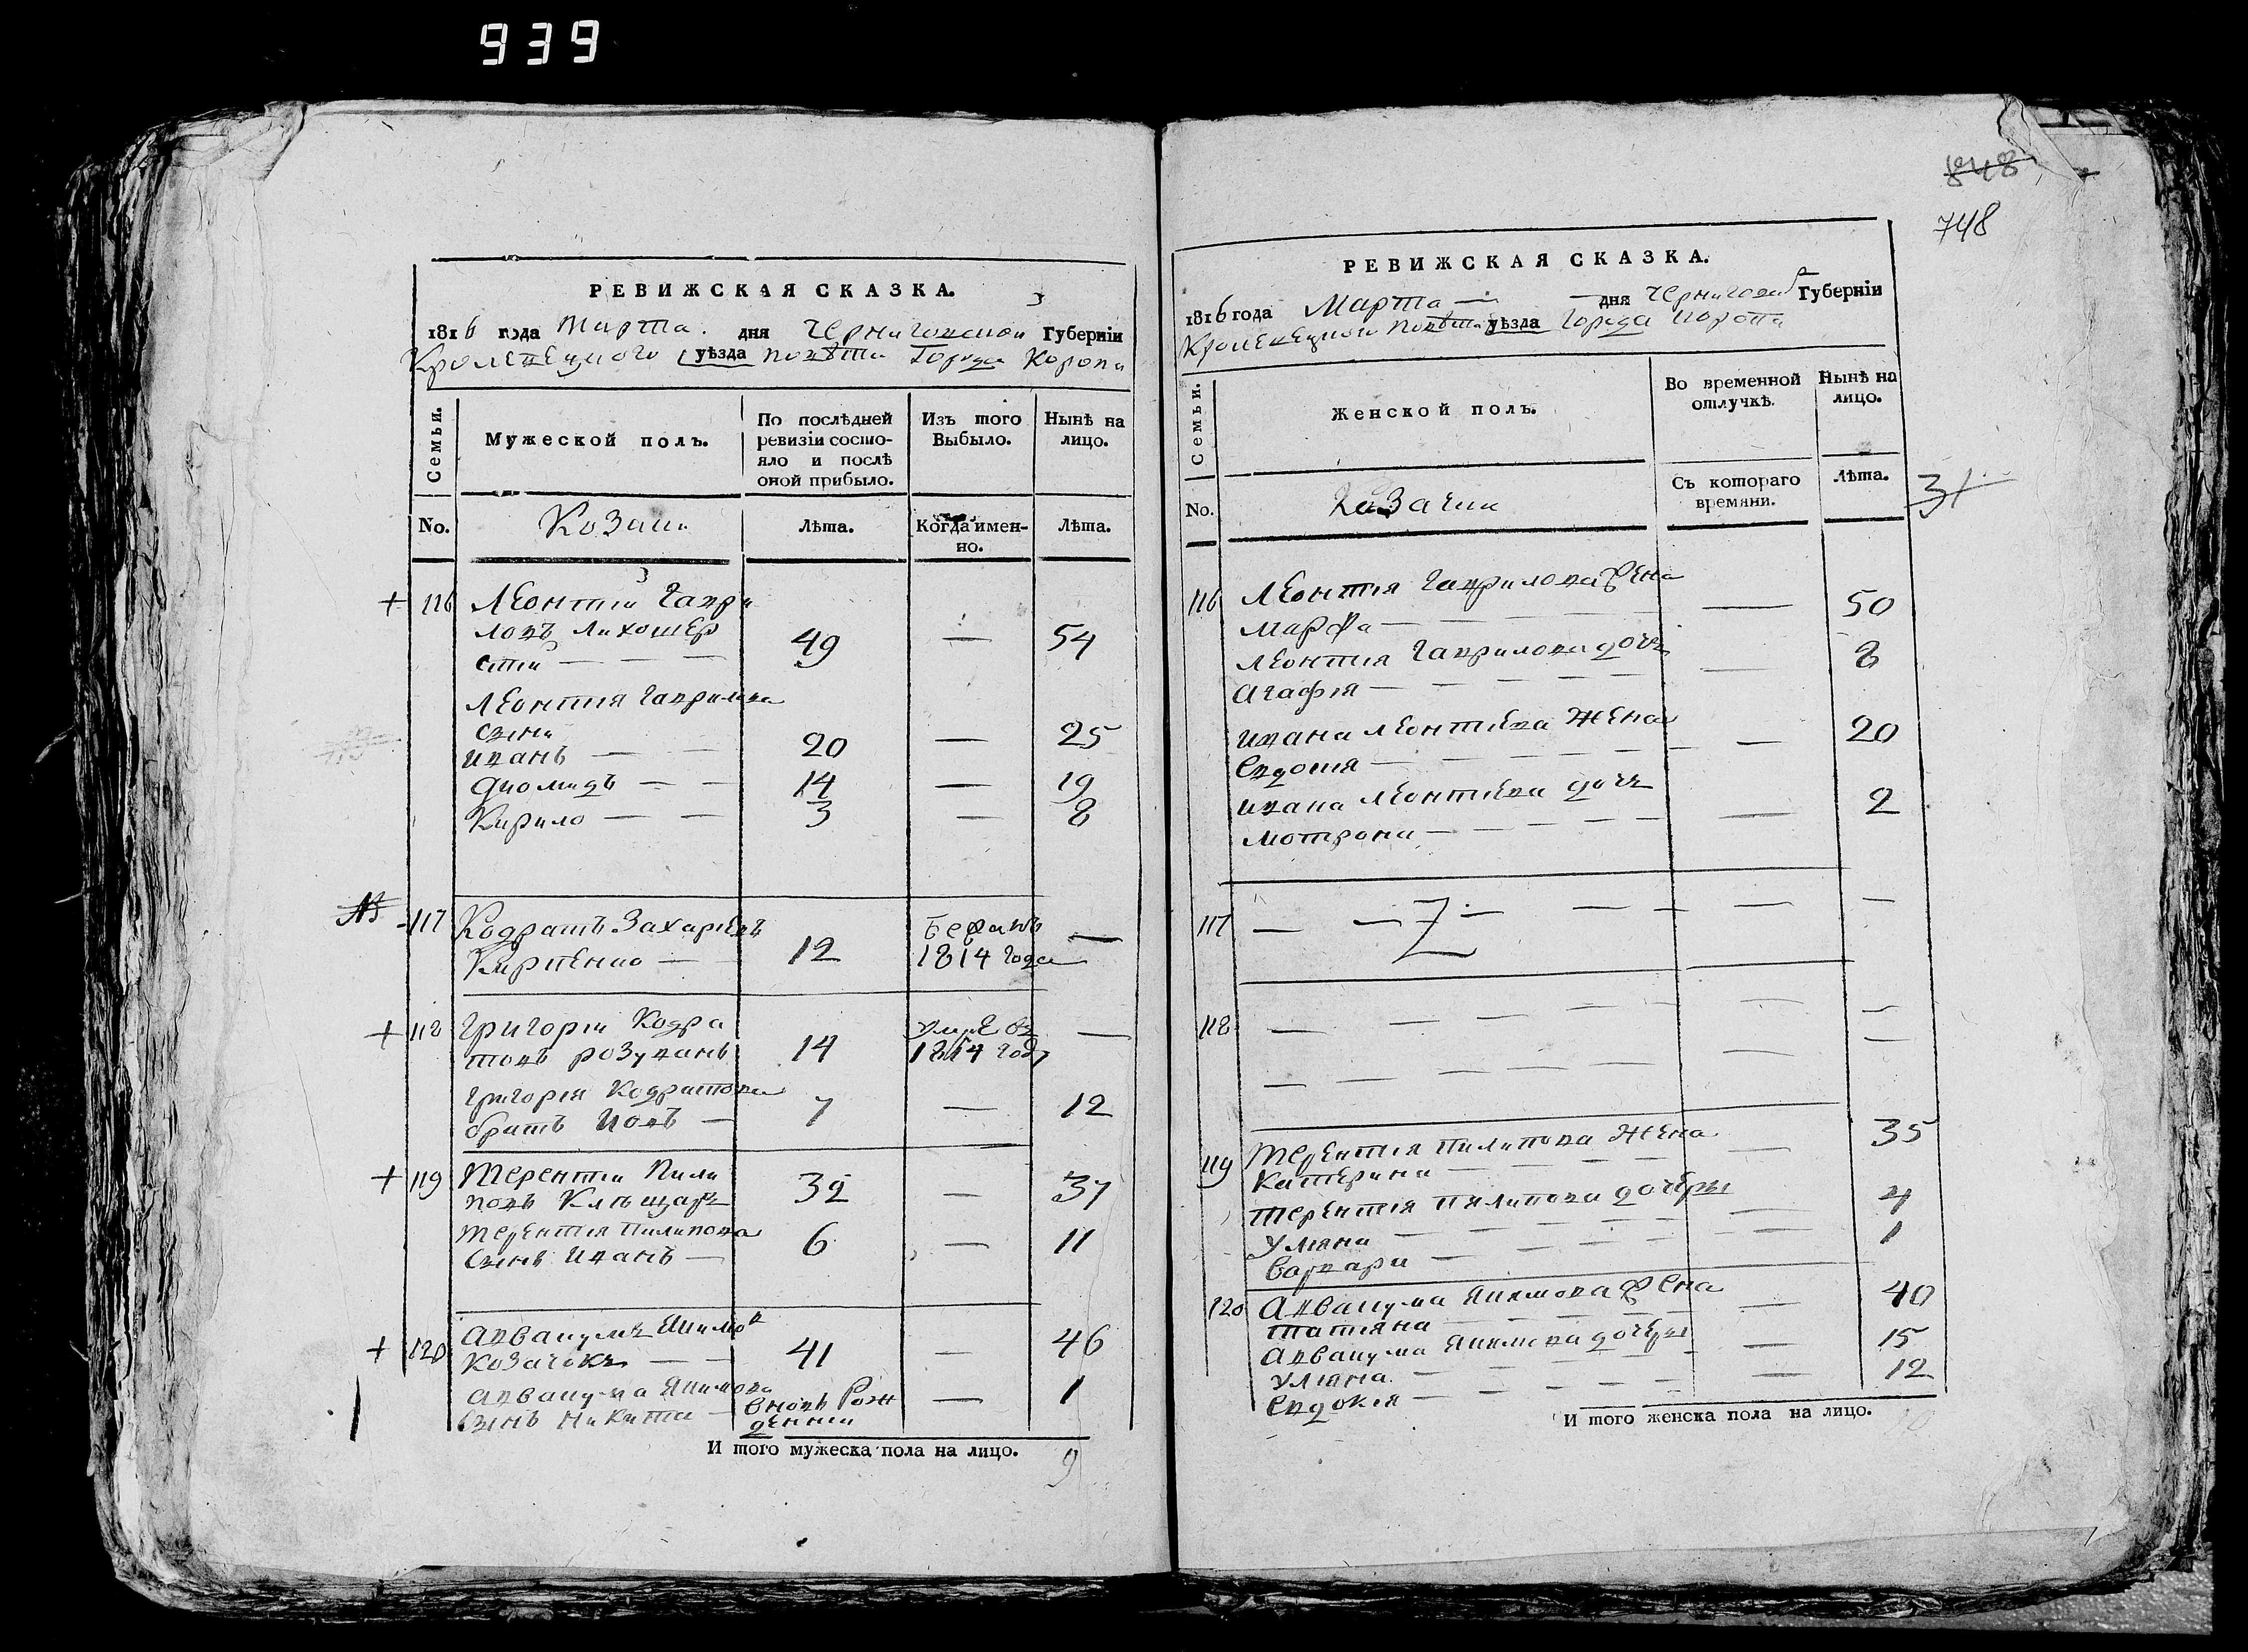 939
РЕВИЖСКАЯ СКАЗКА.
1816 года Марта. дня Черниговской Губерніи
Кролевецкого уѣзда Повѣта Города Коропа
Семьи.
Мужеской полъ.
По послѣдней ревизіи состо-
яло и послѣ
оной прибыло.
Изъ того
Выбыло.
Нынѣ на
лицо.
No.
Козаки
Лѣта.
Когда имен-
но.
Лѣта.
116 Леонтій Гаври
ловъ Лихошер
стій — — 49 — 54
Леонтія Гаврилова
сини
Иванъ — — 20 — 25
Диомидъ — — 14 — 19
Кирило — — 3 — 8
117 Кодратъ Захаріевъ
Кирпенко — 12 Бежалъ 1814 года —
118 Григорій Кодра
товъ Розуванъ 14 умре въ 1814 году —
Григорія Кодратова
братъ Иовъ — 7 — 12
119 Терентій Пили
повъ Клѣщаръ 32 — 37
Терентія Пилипова
синъ Иванъ — 6 — 11
120 Аввакумъ Якимов
Козачокъ — — 41 — 46
Аввакума Якимова
синъ Никита — вновь Рож
денній — 1
И того мужеска пола на лицо. 9
848
748
РЕВИЖСКАЯ СКАЗКА.
1816 года Марта — дня Черниговской Губерніи
Кролевецкого Повѣта уѣзда Города Коропа
Семьи.
Женской полъ.
Во временной
отлучкѣ.
Нынѣ на
лицо.
No.
Козачки
Съ котораго
времяни.
Лѣта.
31
116 Леонтія Гаврилова жена
Марфа — — 50
Леонтія Гаврилова дочь
Агафія — — 8
Ивана Леонтіева жена
Евдокія — — 20
Ивана Леонтіева дочь
Мотрона — — 2
117 — — —
118 — — —
— — —
119 Терентія Пилипова жена
Катерина — — 35
Терентія Пилипова дочеры
Уліяна — — 4
Варвара — — 1
120 Аввакума Якимова жена
Татіяна — — 40
Аввакума Якимова дочеры
Уліяна — — 15
Евдокія — — 12
И того женска пола на лицо.